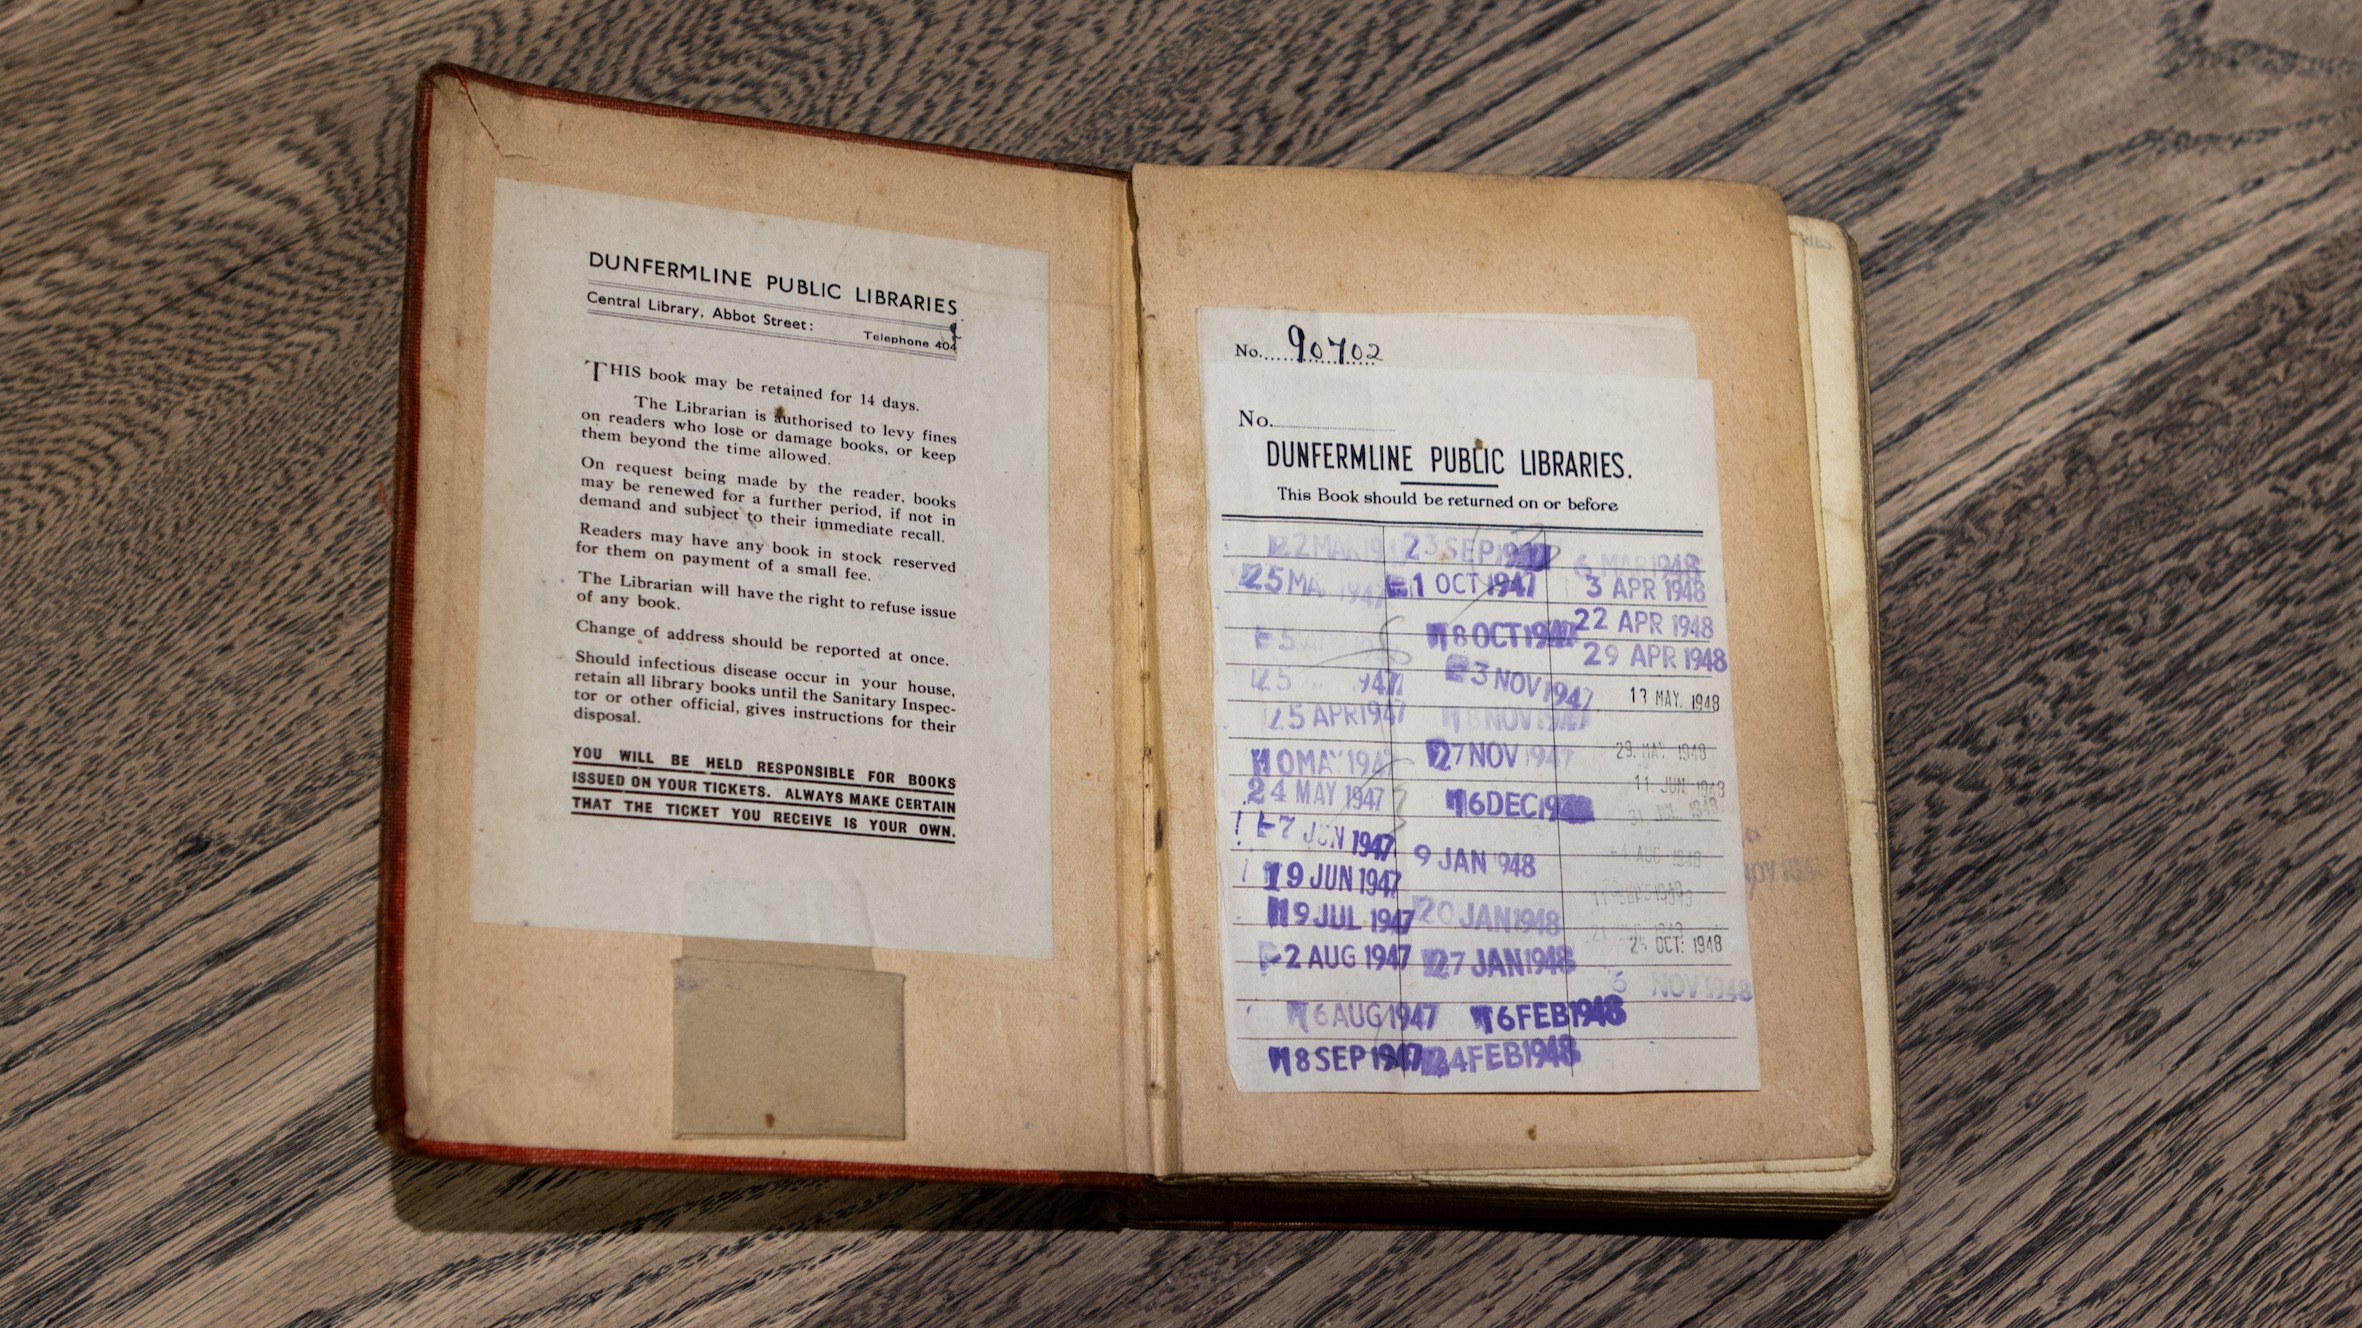 DUNFERMLINE PUBLIC LIBRARIES
Central Library, Abbot Street:
Telephone 404
THIS book may be retained for 14 days.
The Librarian is authorised to levy fines
on readers who lose or damage books, or keep
them beyond the time allowed.
On request being made by the reader, books
may be renewed for a further period, if not in
demand and subject to their immediate recall.
Readers may have any book in stock reserved
for them on payment of a small fee.
The Librarian will have the right to refuse issue
of any book.
Change of address should be reported at once.
Should infectious disease occur in your house,
retain all library books until the Sanitary Inspec-
tor or other official, gives instructions for their
disposal.
YOU WILL BE HELD RESPONSIBLE FOR BOOKS
ISSUED ON YOUR TICKETS. ALWAYS MAKE CERTAIN
THAT THE TICKET YOU RECEIVE IS YOUR OWN.
No. 90702
No.
DUNFERMLINE PUBLIC LIBRARIES.
This Book should be returned on or before
25 APR 1947
MAY 1947
24 MAY 1947
7 JUN 1947
19 JUN 1947
19 JUL 1947
2 AUG 1947
16 AUG 1947
18 SEP 1947
23 SEP
1 OCT 1947
18 OCT 1947
3 NOV 1947
18 NOV 1947
27 NOV 1947
16 DEC
9 JAN 948
20 JAN 1948
27 JAN 1948
16 FEB 1948
24 FEB 1948
6 MAR 1948
3 APR 1948
22 APR 1948
29 APR 1948
13 MAY. 1948
11 JUN. 1948
31 JUL. 1948
AUG 1948
OCT. 1948
6 NOV 1948